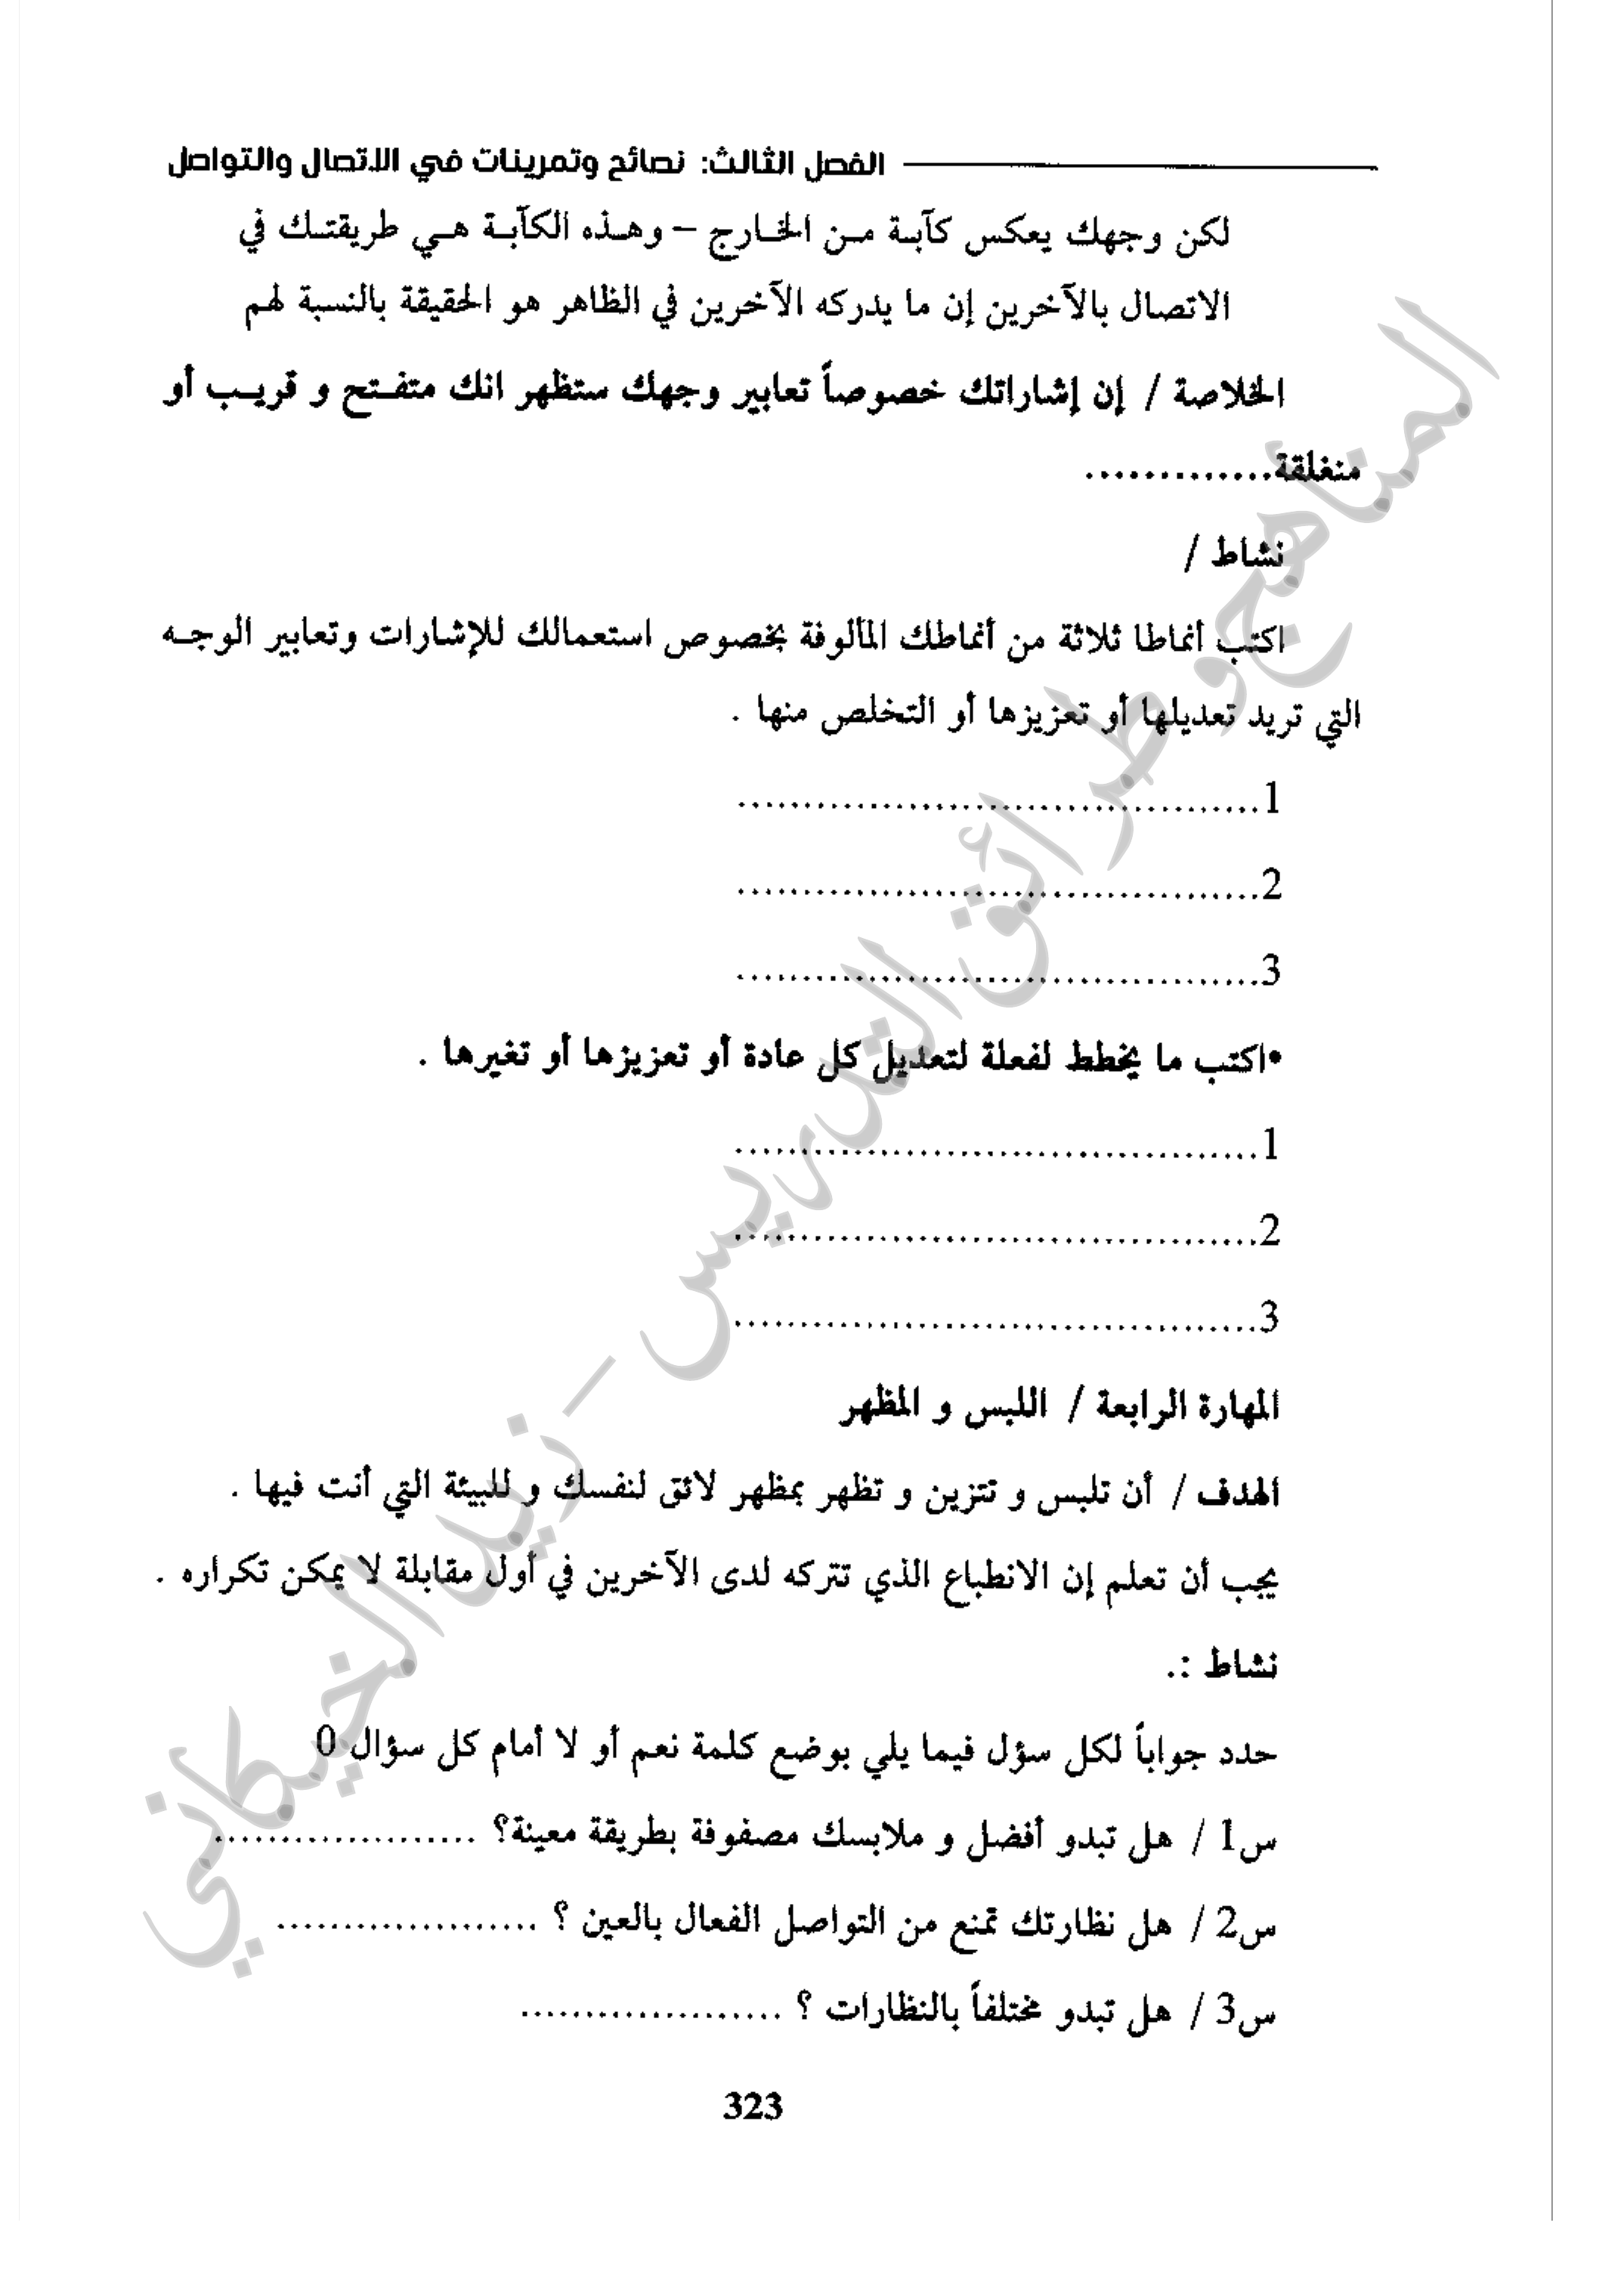 الفصل الثالث: نصائح وتمرينات في الاتصال والتواصل
لكن وجهك يعكس كآبة من الخارج – وهذه الكآبة هي طريقتك في
الاتصال بالآخرين إن ما يدركه الآخرين في الظاهر هو الحقيقة بالنسبة لهم
الخلاصة / إن إشاراتك خصوصاً تعابير وجهك ستظهر انك متفتح و قريب أو
منغلقة.............
نشاط /
اكتب أنماطا ثلاثة من أنماطك المألوفة بخصوص استعمالك للإشارات وتعابير الوجه
التي تريد تعديلها أو تعزيزها أو التخلص منها .
1........................................
2........................................
3........................................
•اكتب ما يخطط لفعلة لتعديل كل عادة أو تعزيزها أو تغيرها .
1........................................
2........................................
3........................................
المهارة الرابعة / اللبس و المظهر
الهدف / أن تلبس و تتزين و تظهر بمظهر لائق لنفسك و للبيئة التي أنت فيها .
يجب أن تعلم إن الانطباع الذي تتركه لدى الآخرين في أول مقابلة لا يمكن تكراره .
نشاط :.
حدد جواباً لكل سؤل فيما يلي بوضع كلمة نعم أو لا أمام كل سؤال 0
س1 / هل تبدو أفضل و ملابسك مصفوفة بطريقة معينة؟ ....................
س2 / هل نظارتك تمنع من التواصل الفعال بالعين ؟ ....................
س3 / هل تبدو مختلفاً بالنظارات ؟ ....................
323
المناهج وطرائق التدريس – زيد الخيكاني